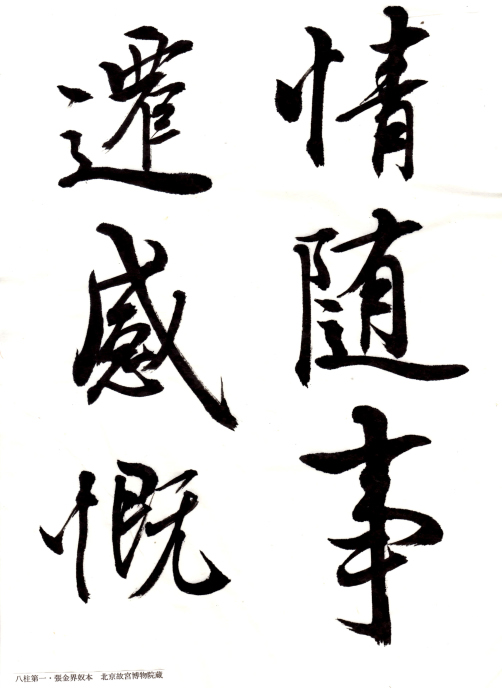 情随事
遷感慨
八柱第一・張金界奴本　北京故宮博物院蔵